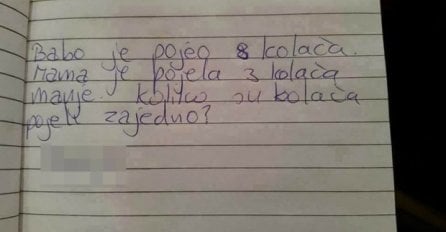 Babo je pojeo 8 kolača.
Mama je pojela 3 kolača
manje. Koliko su kolača
pojeli zajedno?